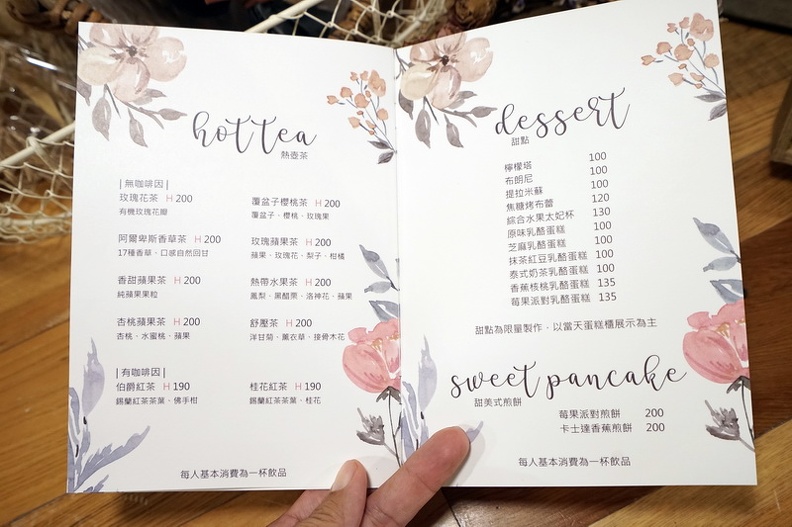 hot tea
熱壺茶
|無咖啡因|
玫瑰花茶 H 200
有機玫瑰花瓣
覆盆子櫻桃茶 H 200
覆盆子、櫻桃、玫瑰果
阿爾卑斯香草茶 H 200
17種香草、口感自然回甘
玫瑰蘋果茶 H 200
蘋果、玫瑰花、梨子、柑橘
香甜蘋果茶 H 200
純蘋果果粒
熱帶水果茶 H 200
鳳梨、黑醋栗、洛神花、蘋果
杏桃蘋果茶 H 200
杏桃、水蜜桃、蘋果
舒壓茶 H 200
洋甘菊、薰衣草、接骨木花
|有咖啡因|
伯爵紅茶 H 190
錫蘭紅茶茶葉、佛手柑
桂花紅茶 H 190
錫蘭紅茶茶葉、桂花
每人基本消費為一杯飲品
dessert
甜點
檸檬塔 100
布朗尼 100
提拉米蘇 100
焦糖烤布蕾 120
綜合水果太妃杯 130
原味乳酪蛋糕 100
芝麻乳酪蛋糕 100
抹茶紅豆乳酪蛋糕 100
泰式奶茶乳酪蛋糕 100
香蕉核桃乳酪蛋糕 135
莓果派對乳酪蛋糕 135
甜點為限量製作，以當天蛋糕櫃展示為主
sweet pancake
甜美式煎餅
莓果派對煎餅 200
卡士達香蕉煎餅 200
每人基本消費為一杯飲品